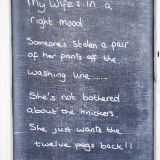 My Wife's in a
right mood
Someone's stolen a pair
of her pants off the
washing line......
She's not bothered
about the knickers
She just wants the
twelve pegs back!!